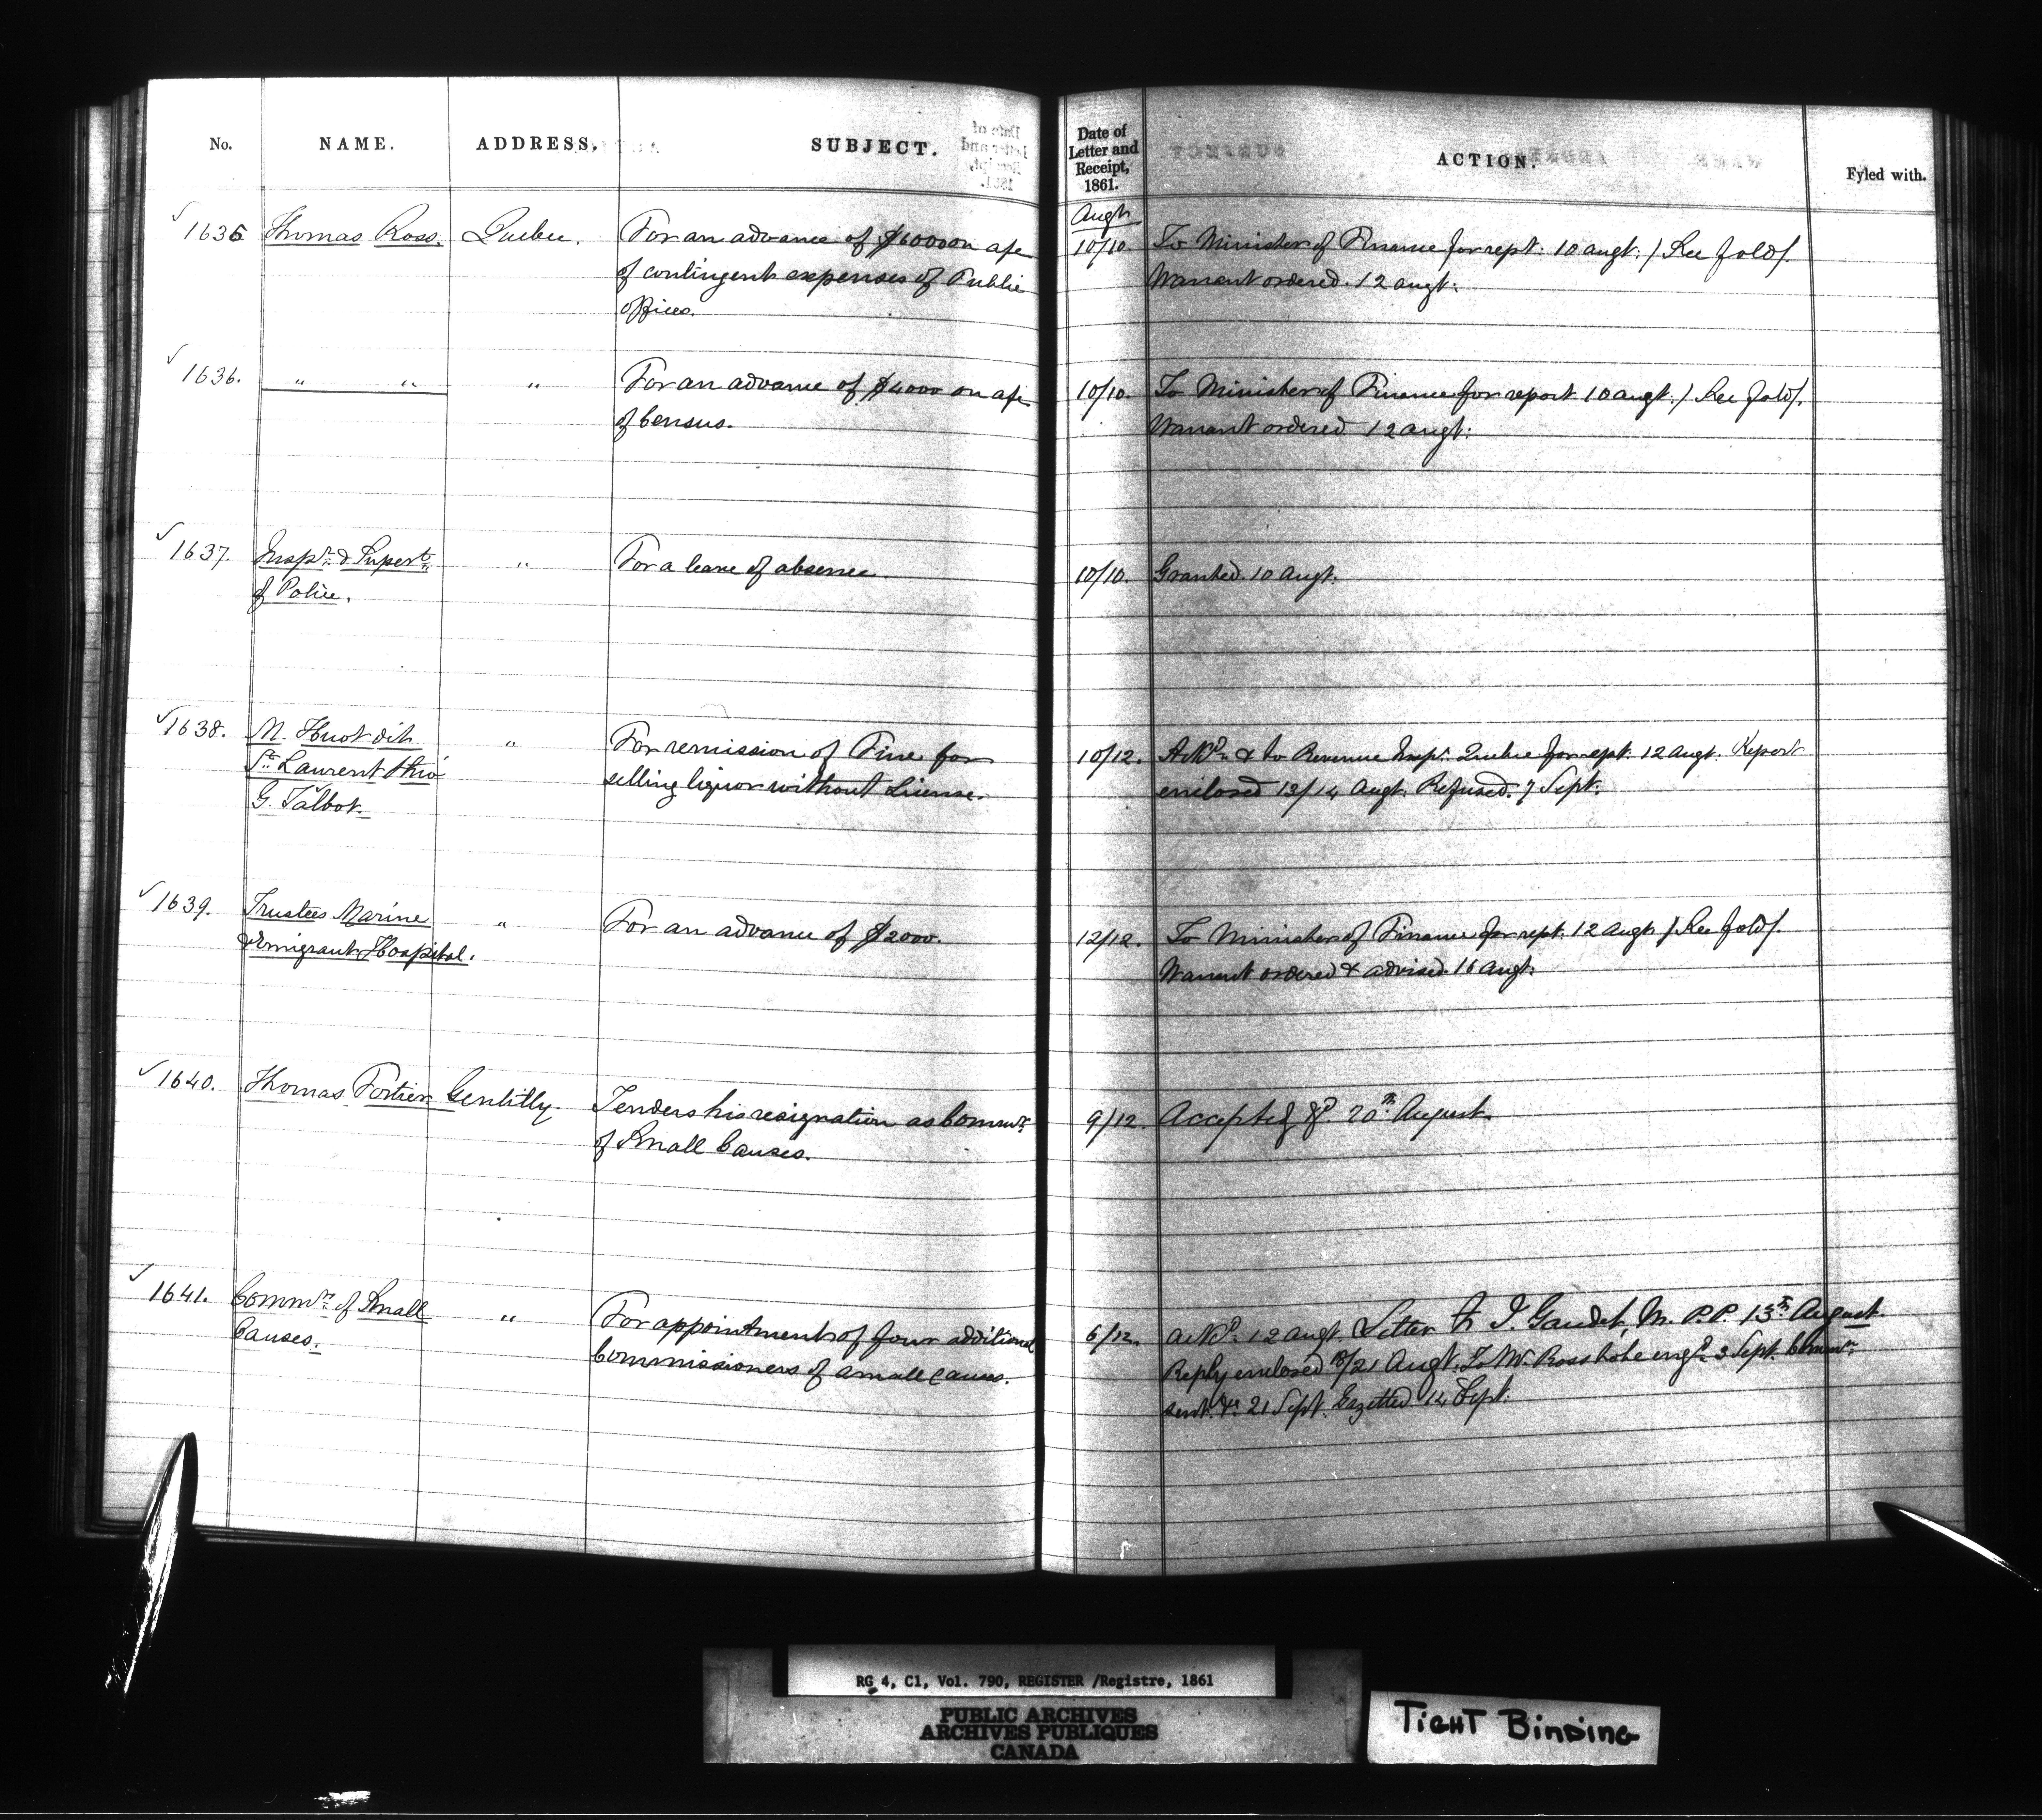 No. NAME. ADDRESS. SUBJECT. Date of Letter and Receipt, 1861. ACTION. Fyled with.
Augt.
1635 Thomas Ross. Quebec. For an advance of $6000 on a/c 10/10. To Minister of Finance for rept: 10 augt: / See fold /.
of contingent expenses of Public Warrant ordered. 12 augt:
offices.
1636. " " " For an advance of $4000 on a/c 10/10. To Minister of Finance for report 10 augt: / See fold /.
of Census. Warrant ordered 12 augt:
1637. Inspr. & Supert. " For a leave of absence. 10/10. Granted. 10 Augt.
of Police.
1638. M. Huot dit " For remission of Fine for 10/12. Ackd. & to Revenue Inspr. Quebec for rept. 12 augt. Report
St. Laurent thro' selling liquor without License. enclosed 13/14 Augt. Refused. 7 Sept.
G. Talbot.
1639. Trustees Marine " For an advance of $2000. 12/12. To Minister of Finance for rept: 12 augt / See fold /.
& Emigrant Hospital. Warrant ordered & advised. 16 augt.
1640. Thomas Fortier Gentilly. Tenders his resignation as Commr. 9/12. Accepted 20th August.
of Small Causes.
1641. Commrs. of Small " For appointment of four additional 6/12. Ackd. 12 augt. Letter J. Gaudet, M.P.P. 13th August.
Causes. Commissioners of small causes. Reply enclosed 18/21 Augt. To W. Ross to be engd. 3 Sept. Commn.
sent. 21 Sept. Gazetted. 14 Sept.
RG 4, C1, Vol. 790, REGISTER /Registre, 1861
PUBLIC ARCHIVES
ARCHIVES PUBLIQUES
CANADA
TIGHT BINDING